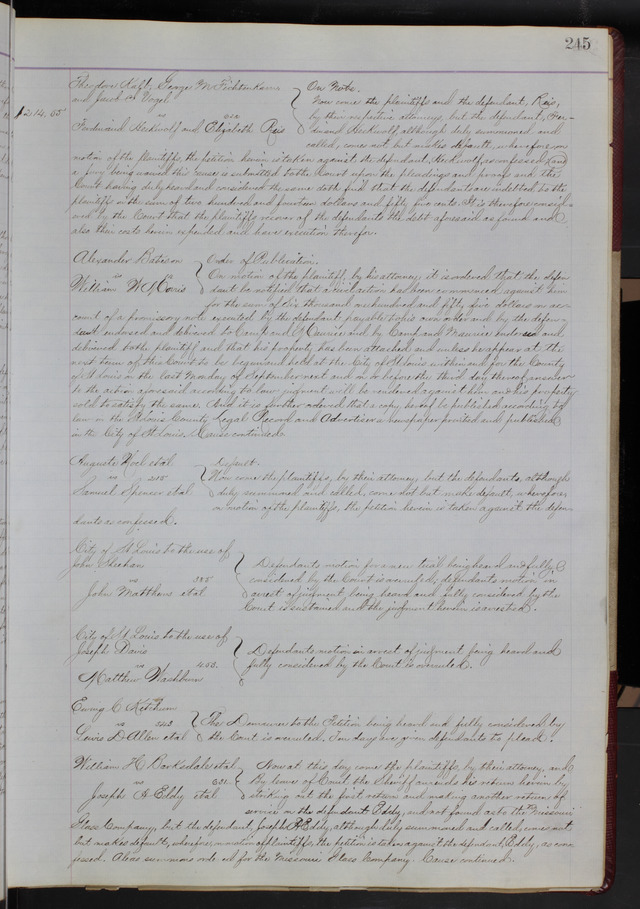 245
Theodore Kalb, George M Fichtenkam
and Jacob Vogel
vs
Ferdinand Heckwolf and Elizabeth Reis
214.55
On Note.
Now come the plaintiffs and the defendant, Reis,
by their respective attorneys, but the defendant, Fer-
dinand Heckwolf although duly summoned and
called, comes not but makes default, wherefore, on
motion of the plaintiffs, the petition herein is taken against the defendant, Heckwolf, as confessed, and
a jury being waived this cause is submitted to the Court upon the pleadings and proofs and the
Court having duly heard and considered the same doth find that the defendants are indebted to the
plaintiffs in the sum of two hundred and fourteen dollars and fifty five cents. It is therefore consid-
ered by the Court that the plaintiffs recover of the defendants the debt aforesaid as found and
also their costs herein expended and have execution therefor.
Alexander Bateson
vs
William W McCanis
Order of Publication.
On motion of the plaintiff, by his attorney it is ordered that the defen-
dant be notified that a civil action has been commenced against him
for the sum of six thousand hundred and fifty five dollars on ac-
count of a promissory note executed by the defendant payable to his own order and by the defen-
dant endorsed and delivered to Camp and Maurice and by Camp and Maurice endorsed and
delivered to the plaintiff and that his property has been attached and unless he appear at the
next term of this Court to be begun and held at the City of St Louis within and for the County
of St Louis on the last Monday of September next and on or before the third day thereof answer
to the action aforesaid according to law judgment will be rendered against him and his property
sold to satisfy the same. And it is further ordered that a copy hereof be published according to
law in the St Louis County Legal Record and Advertiser a newspaper printed and published
in the City of St Louis. Cause continued.
Auguste Noel et al
vs 215
Samuel Spencer et al
Default.
Now come the plaintiffs, by their attorney, but the defendants, although
duly summoned and called, come not but make default, wherefore,
on motion of the plaintiffs, the petition herein is taken against the defen-
dants as confessed.
City of St Louis to the use of
John Sheehan
vs 385
John Matthews et al
Defendants motion for a new trial being heard and fully
considered by the Court is overruled, defendants motion in
arrest of judgment being heard and fully considered by the
Court is sustained and the judgment herein is arrested.
City of St Louis to the use of
Joseph Davis
vs 453
Matthew Washburn
Defendants motion in arrest of judgment being heard and
fully considered by the Court is overruled.
Ewing C Ketchum
vs
Lewis D Allen et al
The Demurrer to the Petition being heard and fully considered by
the Court is overruled. Ten days are given defendants to plead.
William H Barksdale et al
vs 531
Joseph H Eddy et al
Now at this day come the plaintiffs, by their attorney, and
by leave of Court the Sheriff amends his return herein by
striking out the first return and making another return of
service on the defendant Eddy, and not found as to the Missouri
Glass Company, but the defendant, Joseph H Eddy, although duly summoned and called, comes not
but makes default, wherefore, on motion of plaintiffs, the petition is taken against the defendant, Eddy, as con-
fessed. Alias summons ordered for the Missouri Glass Company. Cause continued.